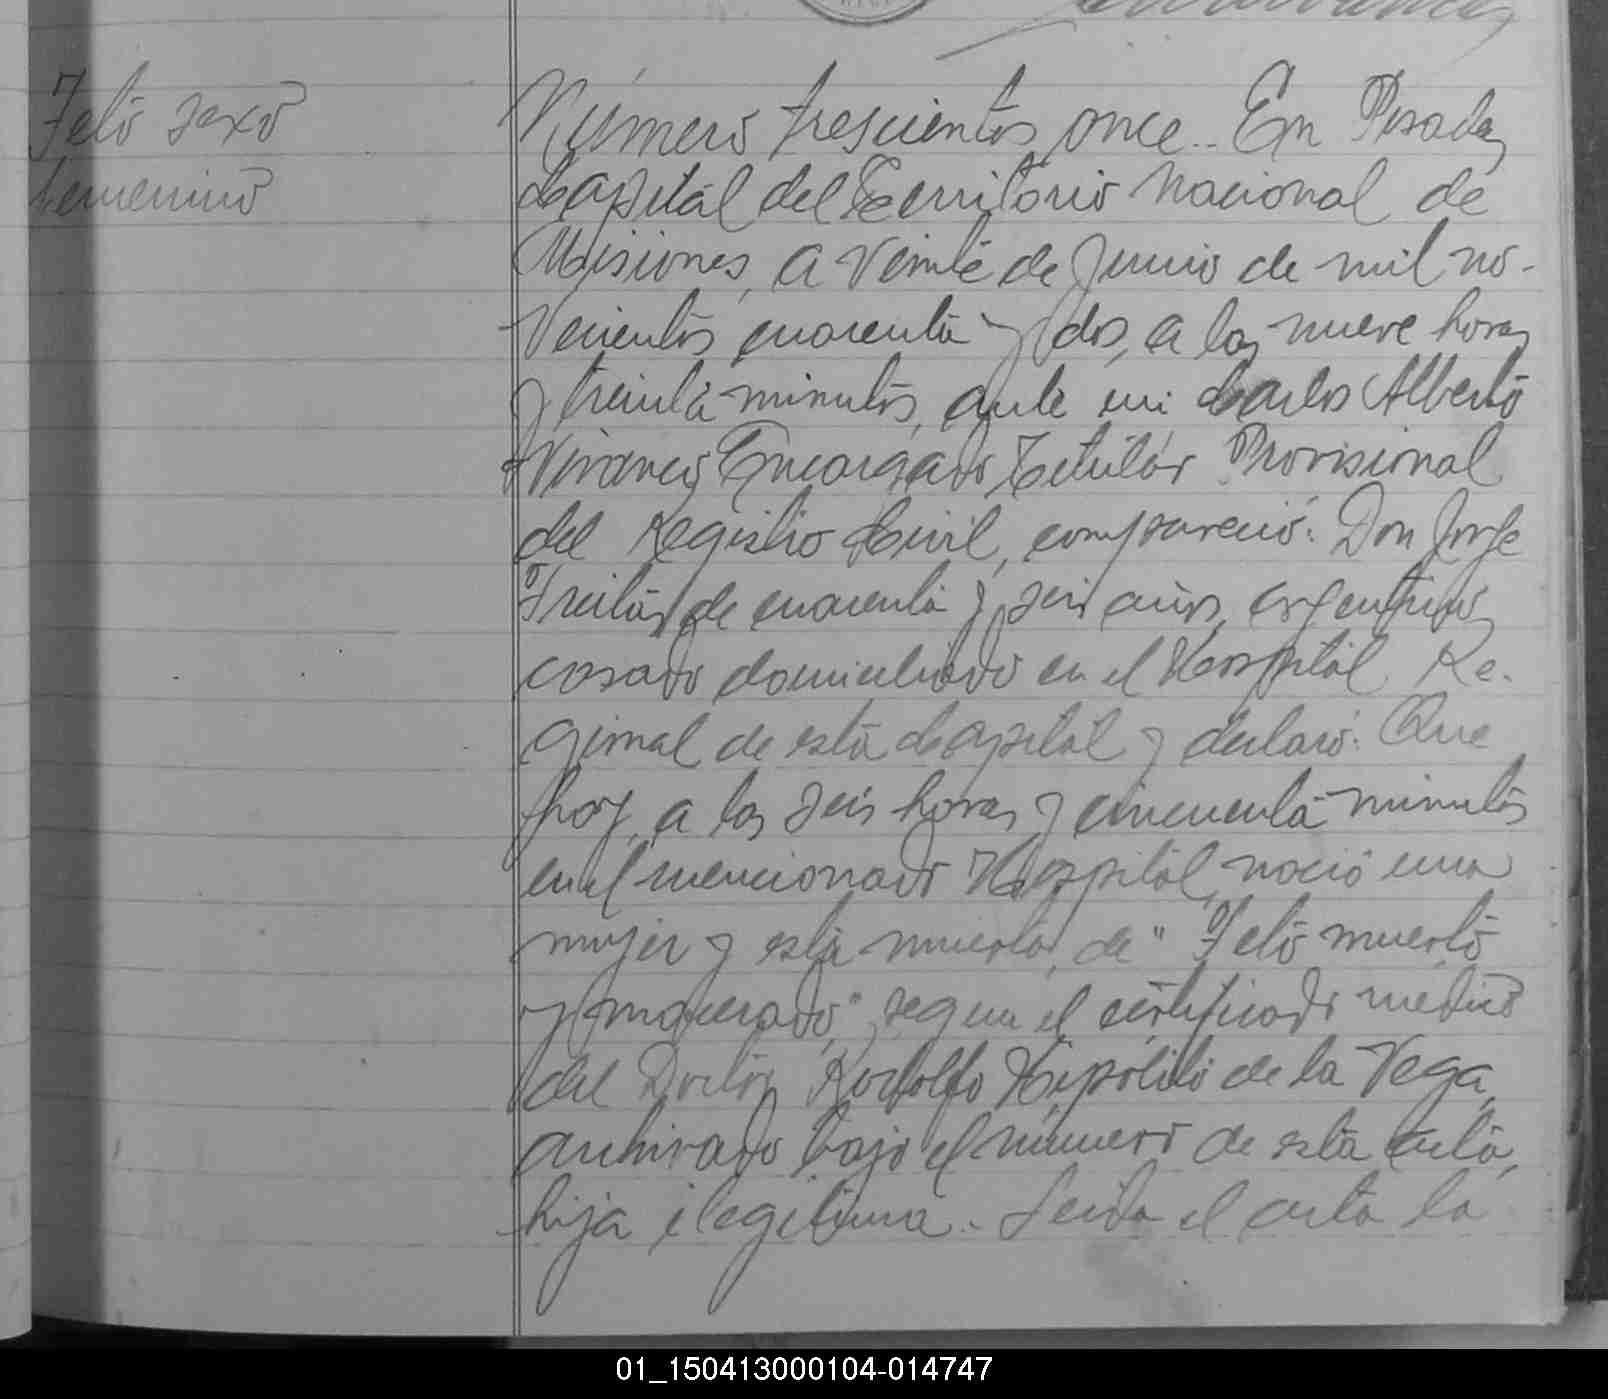 Feto sexo
femenino
Número trescientos once.. En Posadas
Capital del Territorio Nacional de
Misiones, a veinte de Junio de mil no-
vecientos cuarenta y dos, a las nueve horas
y treinta minutos, ante mi Carlos Alberto
Vivanco, Encargado Titular Provisional
del Registro Civil, compareció: Don Jorge
Freitas, de cuarenta y seis años, argentino,
casado domiciliado en el Hospital Re-
gional de esta Capital y declaró: Que
hoy, a las seis horas y cincuenta minutos
en el mencionado Hospital, nació una
mujer y está muerta, de "Feto muerto
y macerado", segun el certificado medico
del Doctor Rodolfo Hipólito de la Vega,
archivado bajo el número de esta acta,
hija ilegitima.. Leida el acta la
01_150413000104-014747